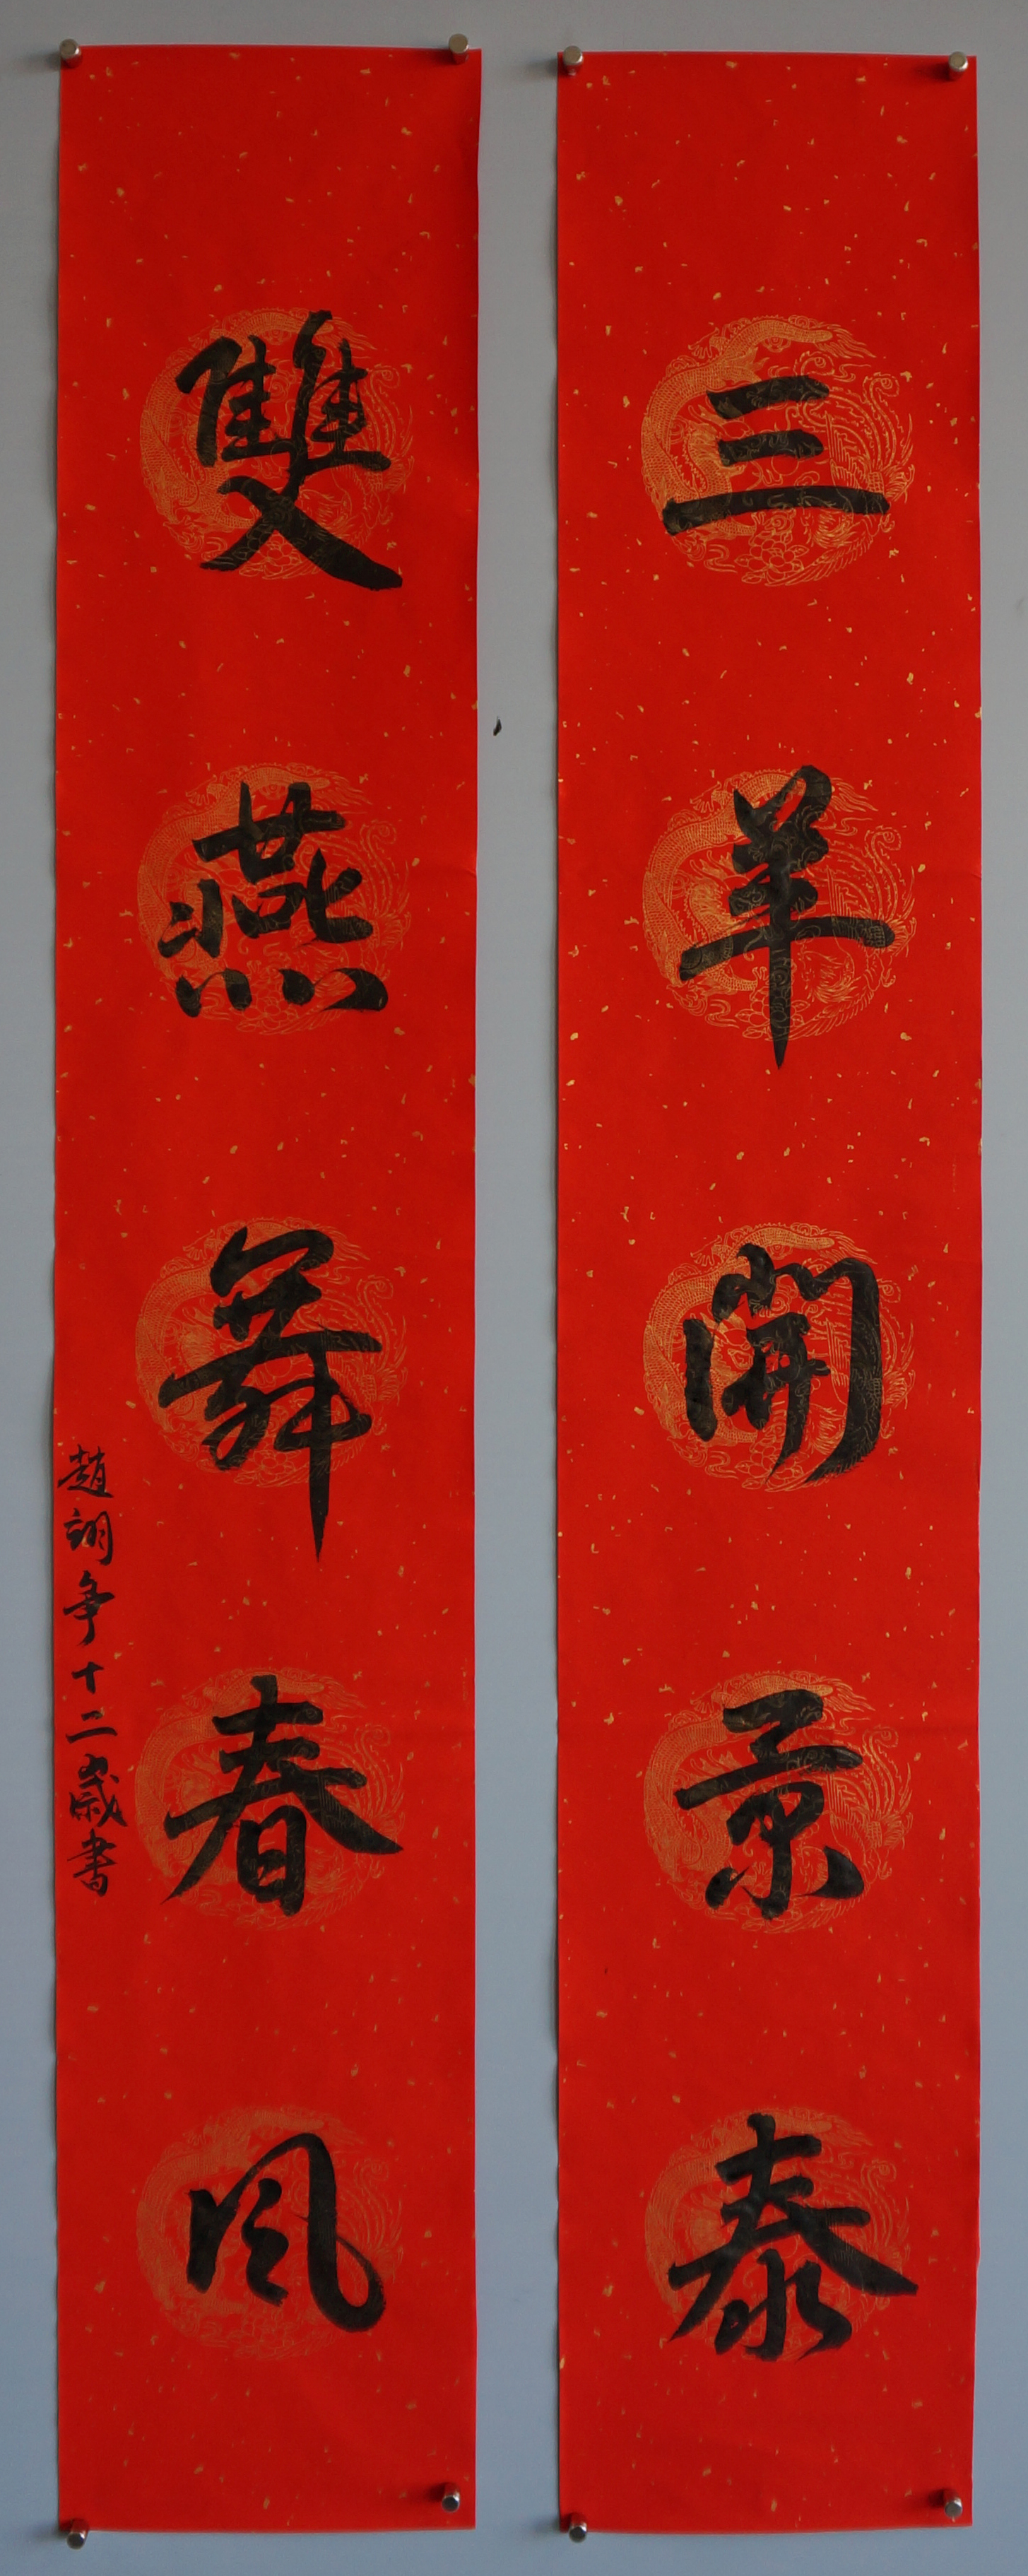 三羊開景泰
雙燕舞春風
趙翊爭十二歲書